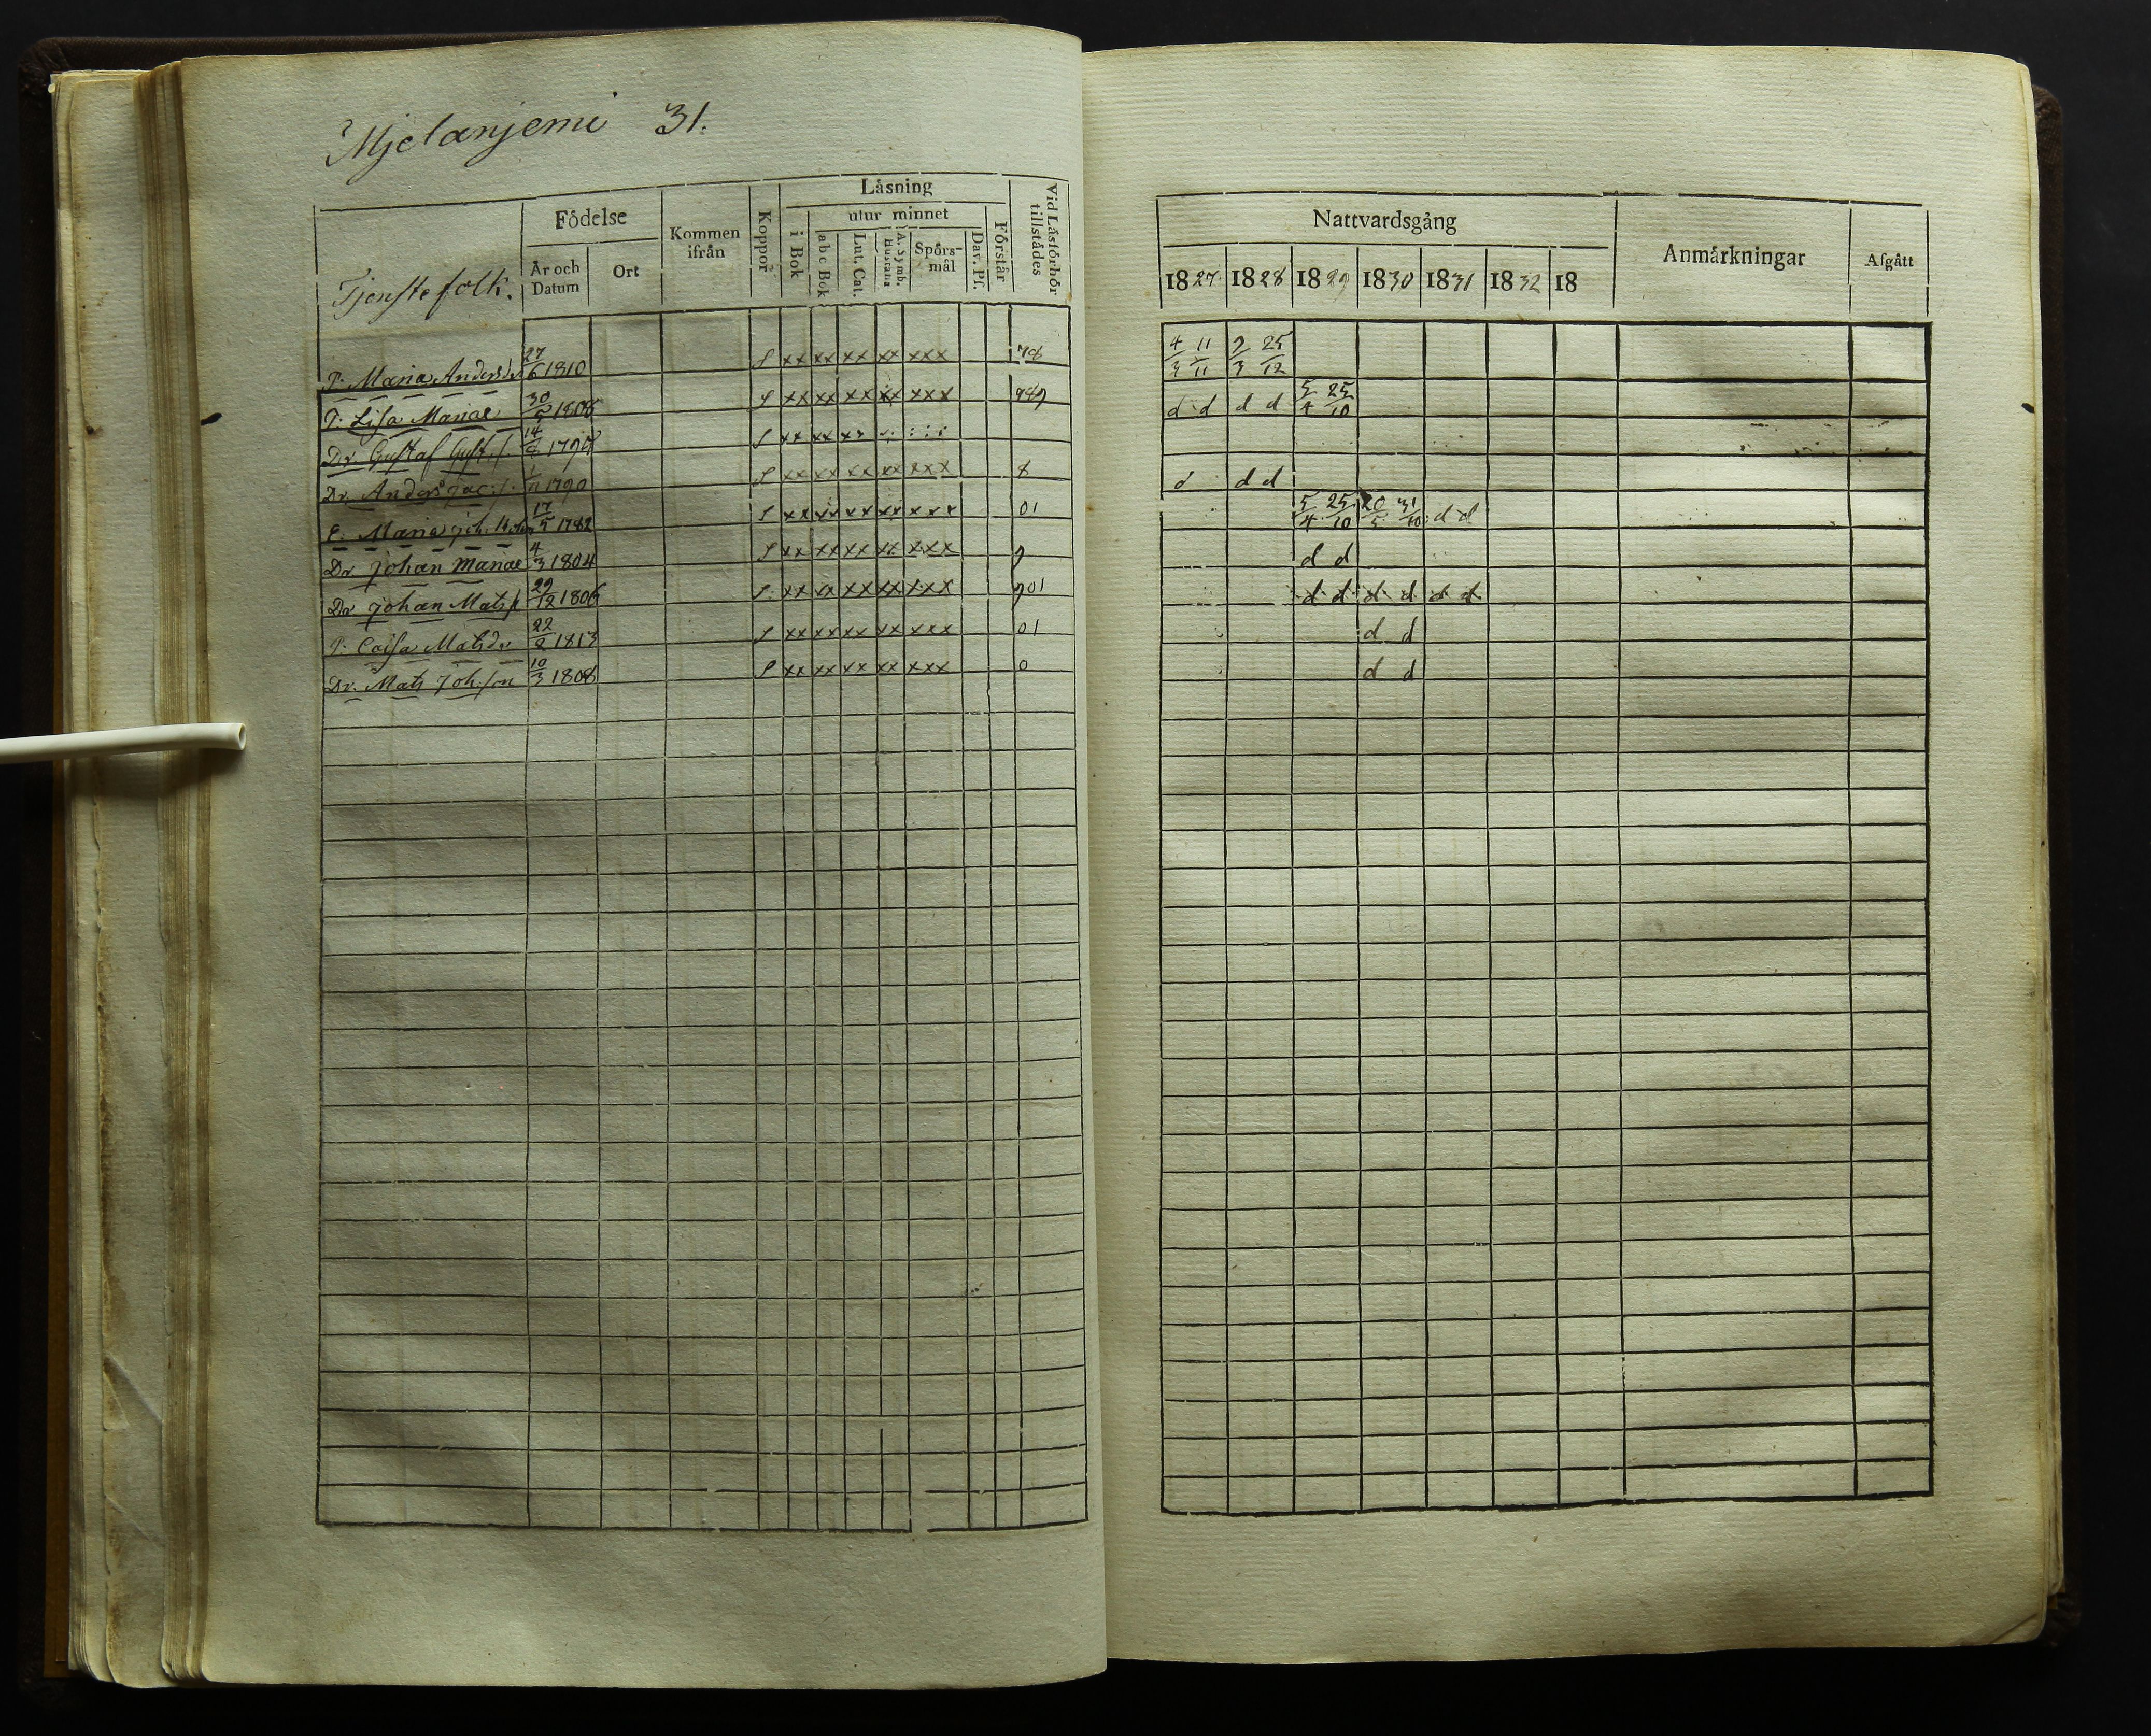 Mjelänjemi 31.
Tjenstefolk.
Födelse
År och Datum
Ort
Kommen ifrån
Koppor
Läsning
i Bok
utur minnet
a b c Bok
Lut. Cat.
A. Symb. Hustafla
Spörsmål
Dav. Pſ.
Förstår
Vid Läsförhör tillstädes
P. Maria Andersdr 27/6 1810 S xx xx xx xx xxx 78
P. Lisa Mariae 30/5 1806 S xx xx xx xx xxx 789
Dr. Gustaf Gust.s. 14/8 1790 S xx xx xx
Dr. Anders Jac.s. 1/11 1790 S xx xx xx xx xxx 8
E. Maria Joh. 17/5 1782 S xx xx xx xx xxx 01
Dr Johan Mariae 4/3 1804 S xx xx xx xx xxx 9
Dr Johan Mats.s 29/12 1806 S xx xx xx xx xxx 901
P. Caisa Matsdr 22/8 1813 S xx xx xx xx xxx 01
Dr. Mats Joh.son 10/3 1808 S xx xx xx xx xxx 0
Nattvardsgång
1827 1828 1829 1830 1831 1832 18
Anmärkningar
Afgått
4/3 11/11 9/3 25/12
d d d d 5/4 25/10
d d d
5/4 25/10 20/5 31/10 d d
d d
d d d d d d
d d
d d